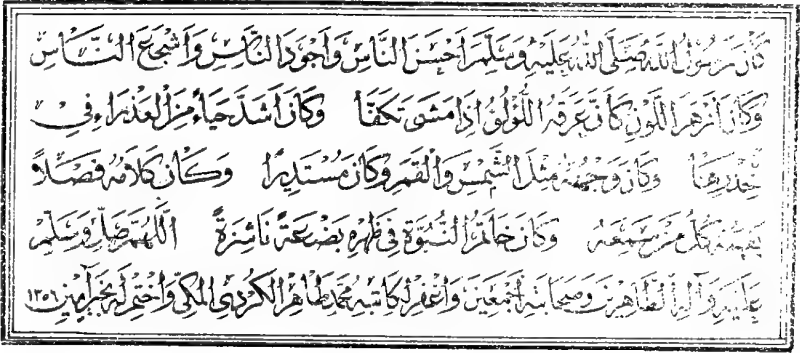 كَانَ رَسُولُ اللَّهِ صَلَّى اللَّهُ عَلَيْهِ وَسَلَّمَ أَحْسَنَ النَّاسِ وَأَجْوَدَ النَّاسِ وَأَشْجَعَ النَّاسِ
وَكَانَ أَزْهَرَ اللَّوْنِ كَأَنَّ عَرَقَهُ اللُّؤْلُؤُ إِذَا مَشَى تَكَفَّأَ وَكَانَ أَشَدَّ حَيَاءً مِنَ الْعَذْرَاءِ فِي
خِدْرِهَا وَكَانَ وَجْهُهُ مِثْلَ الشَّمْسِ وَالْقَمَرِ وَكَانَ مُسْتَدِيرًا وَكَانَ كَلَامُهُ فَصْلًا
يَفْهَمُهُ كُلُّ مَنْ سَمِعَهُ وَكَانَ خَاتَمُ النُّبُوَّةِ فِي ظَهْرِهِ بَضْعَةً نَاشِزَةً اللَّهُمَّ صَلِّ وَسَلِّمْ
عَلَيْهِ وَآلِهِ الطَّاهِرِينَ وَصَحَابَتِهِ أَجْمَعِينَ وَاغْفِرْ لِكَاتِبِهِ مُحَمَّد طَاهِر الْكُرْدِي الْمَكِّي وَاخْتِمْ لَهُ بِخَيْرٍ آمِينَ ١٣٥٦